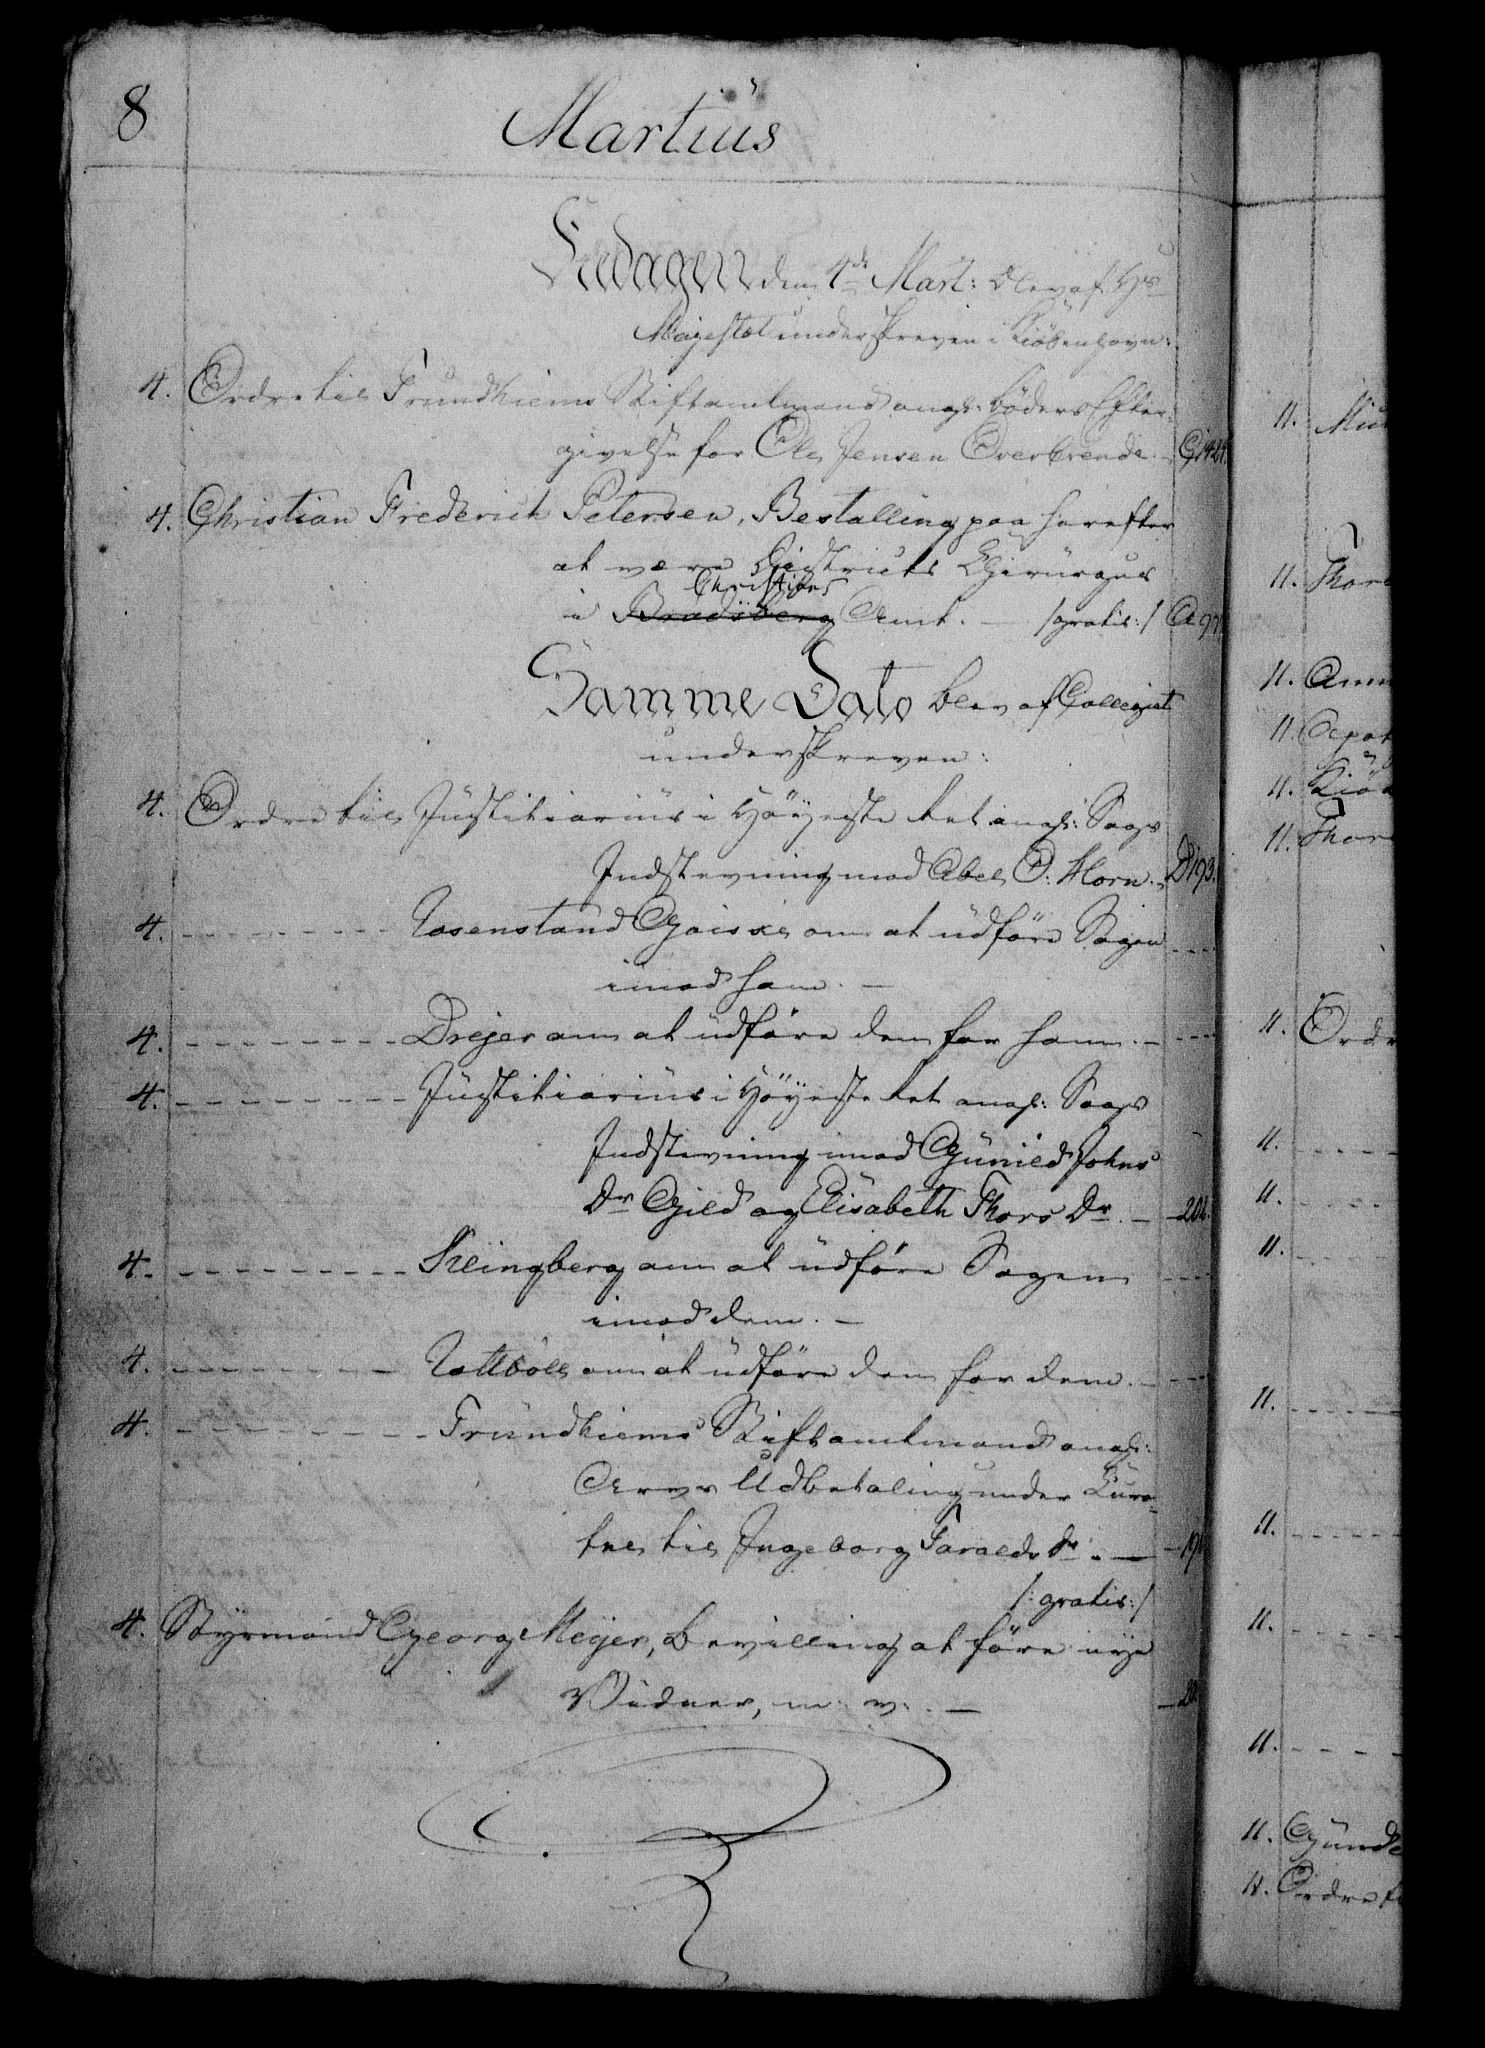 8
Martius
Fredagen den 4de Mart: blev af Hs
Majestet underskreven i Kiöbenhavn:
4. Ordre til Trundhiems Stiftamtmand angl: Böders Efter-
givelse for Ole Jensen Overbrende. -
4. Christian Frederich Petersen, Bestalling paa herefter
at være Districts Chirurgus
Christians
i Bradsberg Amt. - /:gratis:/
Samme Dato blev af Collegiet
underskreven:
4. Ordre til Justitiarius i Höyeste Ret angl: Sags
Indstevning mod Abel O: Horn. - D193.
4. - - - Rosenstand Goiske om at udföre Sagen
imod ham. -
4. - - - Drejer om at udföre den for ham. -
4. - - - Justitiarius i Höyeste Ret angl: Sags
Indstevning imod Gunild Johns
Dr Gield og Elisabeth Thors Dr. -
4. - - - Klingberg om at udföre Sagen
imod dem. -
4. - - - Rottböll om at udföre den for dem. -
4. - - - Trundhiems Stiftamtmand angl:
Arvs Udbetaling under Cura-
tel til Ingeborg Taralds Dr. -
/:gratis:/
4. Styrmand Georg Meyer, Bevilling at före nye
Vidner, m. v. -
11.
11. Thor
11.
11.
11.
11. Thor
11. Ordr
11.
11.
11.
11.
11.
11.
11.
11. Gunde
11. Ordre